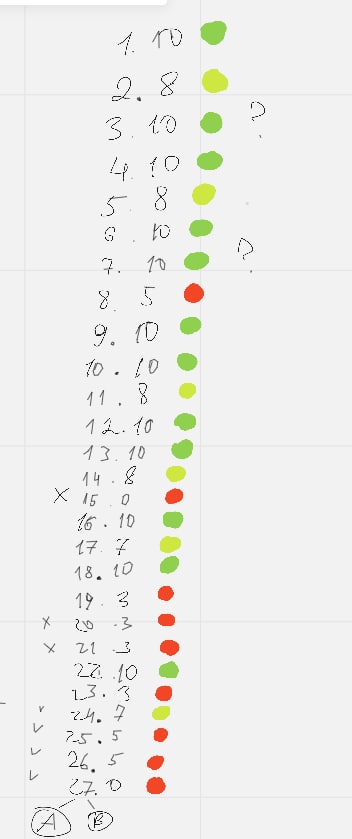 1. 10
2. 8
3. 10 ?
4. 10
5. 8
6. 10
7. 10 ?
8. 5
9. 10
10. 10
11. 8
12. 10
13. 10
14. 8
x 15. 0
16. 10
17. 7
18. 10
19. 3
x 20. 3
x 21. 3
22. 10
23. 3
v 24. 7
v 25. 5
v 26. 5
v 27. 0
A B